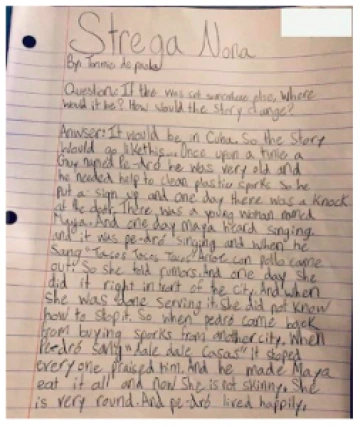 Strega Nona
By: Tommie de paola
Question: If the was set somewhere else, where
would it be? How would the story change?
Anwser: It would be in Cuba. So the story
would go like this... Once upon a time a
Guy named Pe-dró he was very old and
he needed help to clean plastic sporks. So he
put a sign up and one day there was a knock
at the door. There was a young woman named
Maya. And one day maya heard singing.
and it was pe-dró singing and when he
sang "Tacos Tacos Tacos" Arroz con pollo came
out! So she told rumors. And one day she
did it right in front of the city. And when
she was done serving it she did not know
how to stop it. So when pedró came back
from buying sporks from another city. When
Pe-dró sang "dale dale casas" it stoped
every one praised him. And he made Maya
eat it all and now she is not skinny. She
is very round. And pe-dró lived happily.